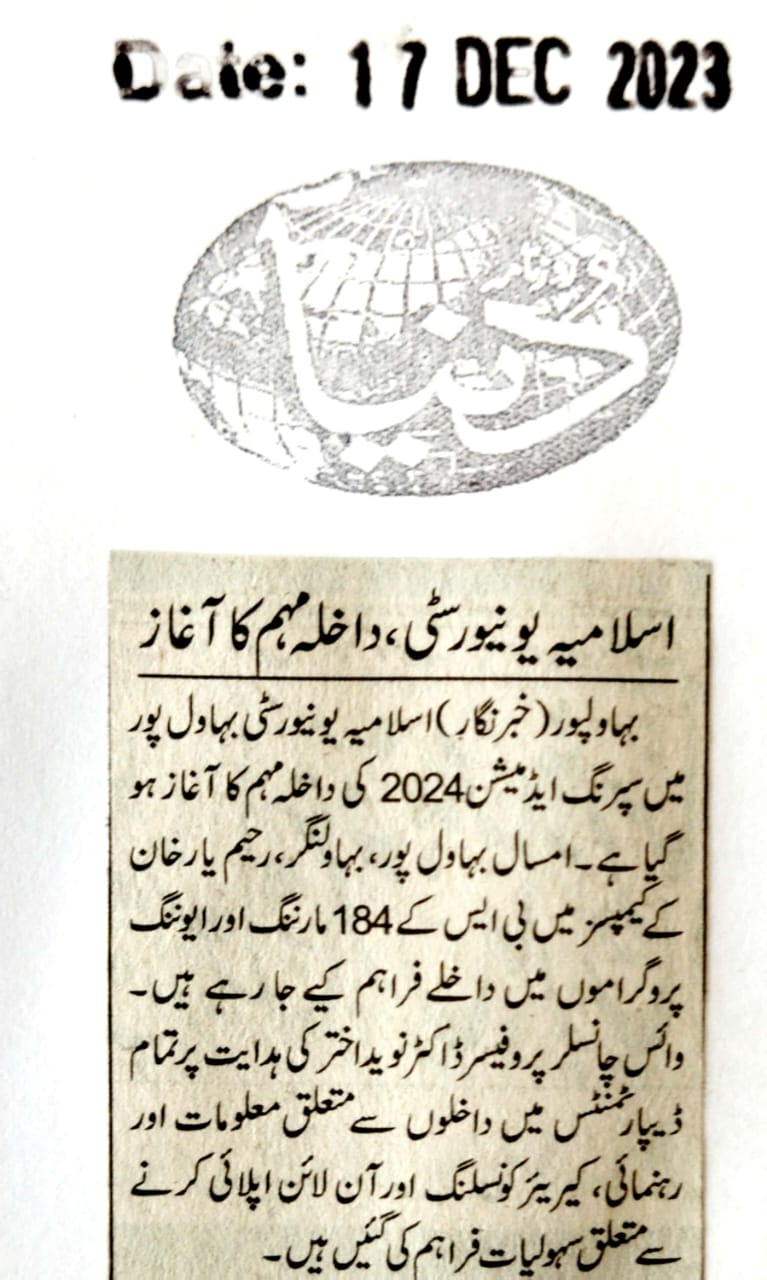 Date: 17 DEC 2023
روزنامہ
دنیا
اسلامیہ یونیورسٹی، داخلہ مہم کا آغاز
بہاولپور (خبر نگار) اسلامیہ یونیورسٹی بہاول پور
میں سپرنگ ایڈمیشن 2024 کی داخلہ مہم کا آغاز ہو
گیا ہے۔ امسال بہاول پور، بہاولنگر، رحیم یار خان
کے کیمپسز میں بی ایس کے 184 مارننگ اور ایوننگ
پروگراموں میں داخلے فراہم کیے جا رہے ہیں۔
وائس چانسلر پروفیسر ڈاکٹر نوید اختر کی ہدایت پر تمام
ڈیپارٹمنٹس میں داخلوں سے متعلق معلومات اور
رہنمائی، کیریئر کونسلنگ اور آن لائن اپلائی کرنے
سے متعلق سہولیات فراہم کی گئیں ہیں۔